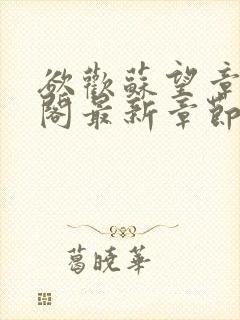 欲歡蘇望章
閣最新章節
葛曉華